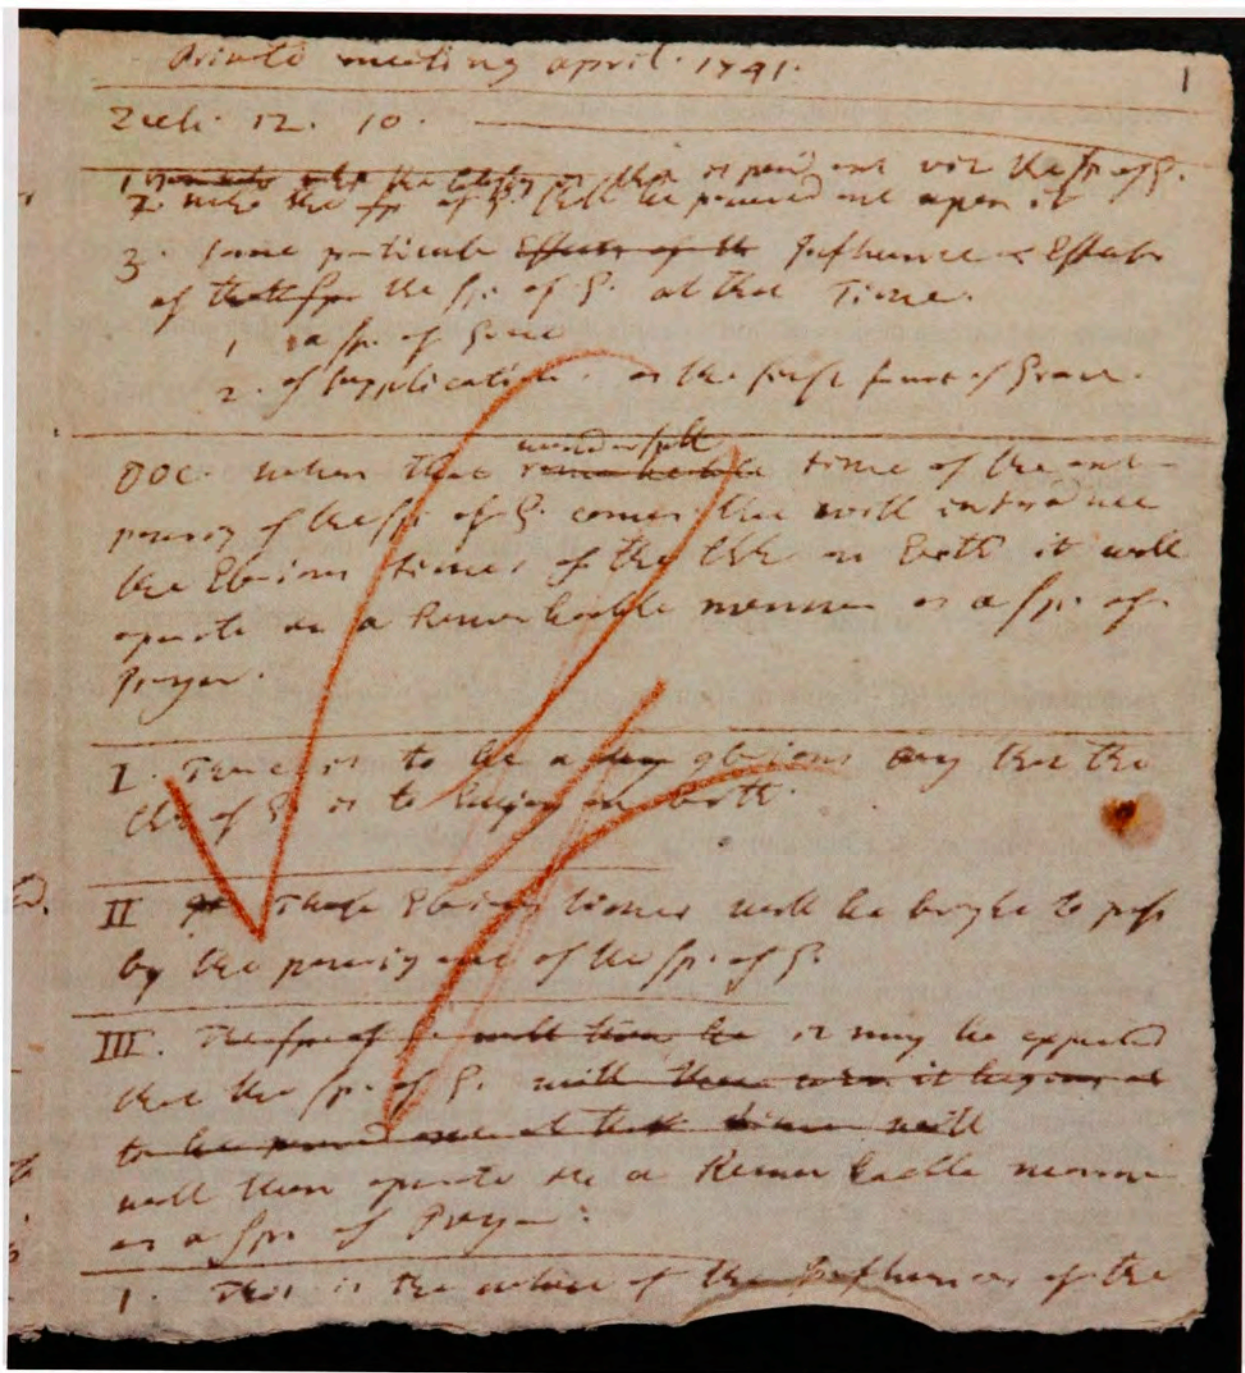 Private meeting april. 1741. 1
Zech. 12. 10.
1 the is pourd out viz the Sp. of G.
2. the Sp of G. shall be poured out upon it
3. some particular Effects of the Influence & Effects
of that Sp. the Sp. of G. at that Time.
1 a Sp. of Grace
2. of Supplication. as the first fruit of Grace.
wonderfull
DOC. when that remarkable time of the out-
pouring of the Sp. of G. comes that will introduce
the Glorious times of the Chh on Earth it will
operate in a Remarkable manner as a Sp. of
Prayer.
I. There is to be a glorious day that the
Chh of G. is to Enjoy on Earth.
II These Glorious times will be bro't to pass
by the pouring out of the Sp. of G.
III. The Sp. of G. will then be it may be expected
that the Sp. of G. will then when it begins
to be pourd out at that time will
will then operate in a Remarkable manner
as a Sp. of Prayer:
1. This is the nature of the Influences of the